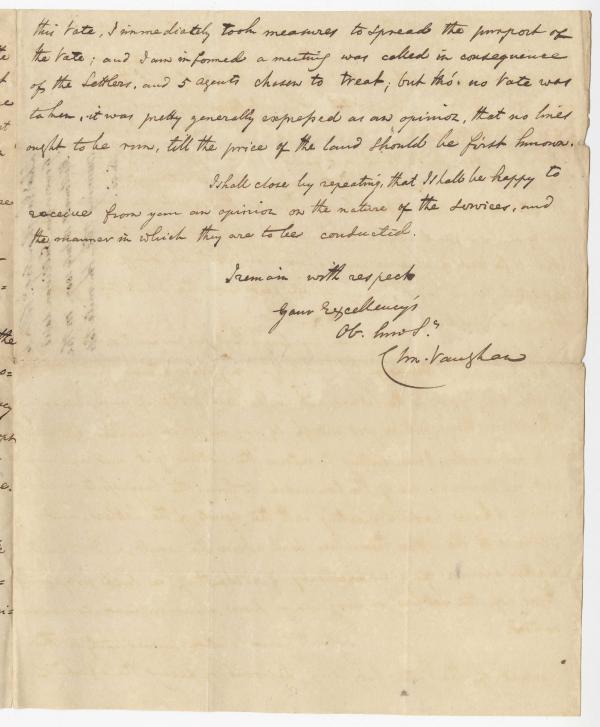 this Vote, I immediately took measures to spread the purport of
the Vote; and I am informed a meeting was called in consequence
of the Settlers, and 5 agents chosen to treat; but tho' no Vote was
taken, it was pretty generally expressed as an opinion, that no lines
ought to be run, till the price of the land should be first known.
I shall close by repeating, that I shall be happy to
receive from you an opinion on the nature of the services, and
the manner in which they are to be conducted.
I remain with respect
Your Excellency's
Ob. hum S.
Vaughan